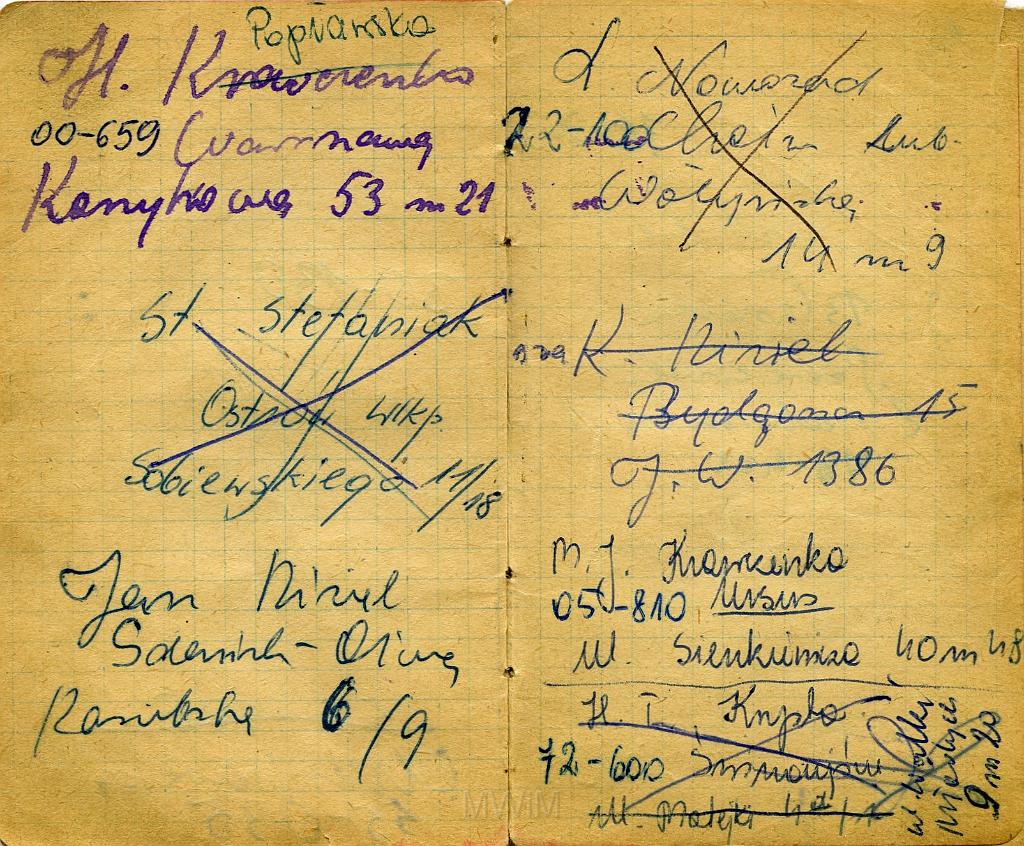 Popławska
H. Krawczenko
00-659 Warszawa
Koszykowa 53 m 21
St. Stefaniak
Ostrów Wlkp.
Sobieskiego 11/18
Jan Kiziel
Gdańsk-Oliwa
Kaszubska 6/9
L. Nowosad
22-100 Chełm Lub.
Wołyńska
14 m 9
K. Kiziel
Bydgoszcz 15
J.W. 1386
M. J. Krawczenko
05-810 Ursus
ul. Sienkiewicza 40 m 48
H. I. Knypło
72-600 Świnoujście
ul. Matejki
9 m 20
MWM